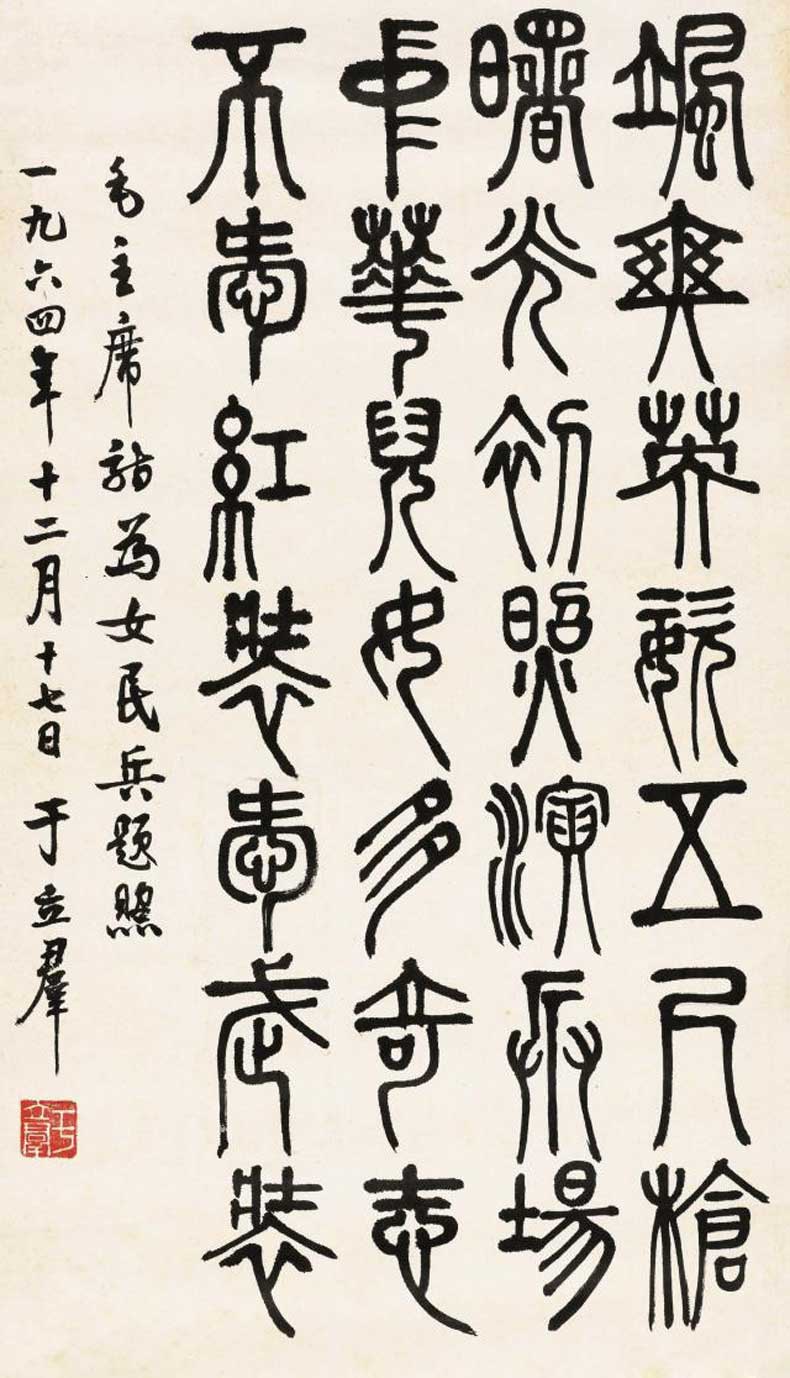 颯爽英姿五尺槍
曙光初照演兵場
中華兒女多奇志
不愛紅裝愛武裝
毛主席詩為女民兵題照
一九六四年十二月十七日于立羣
于立羣